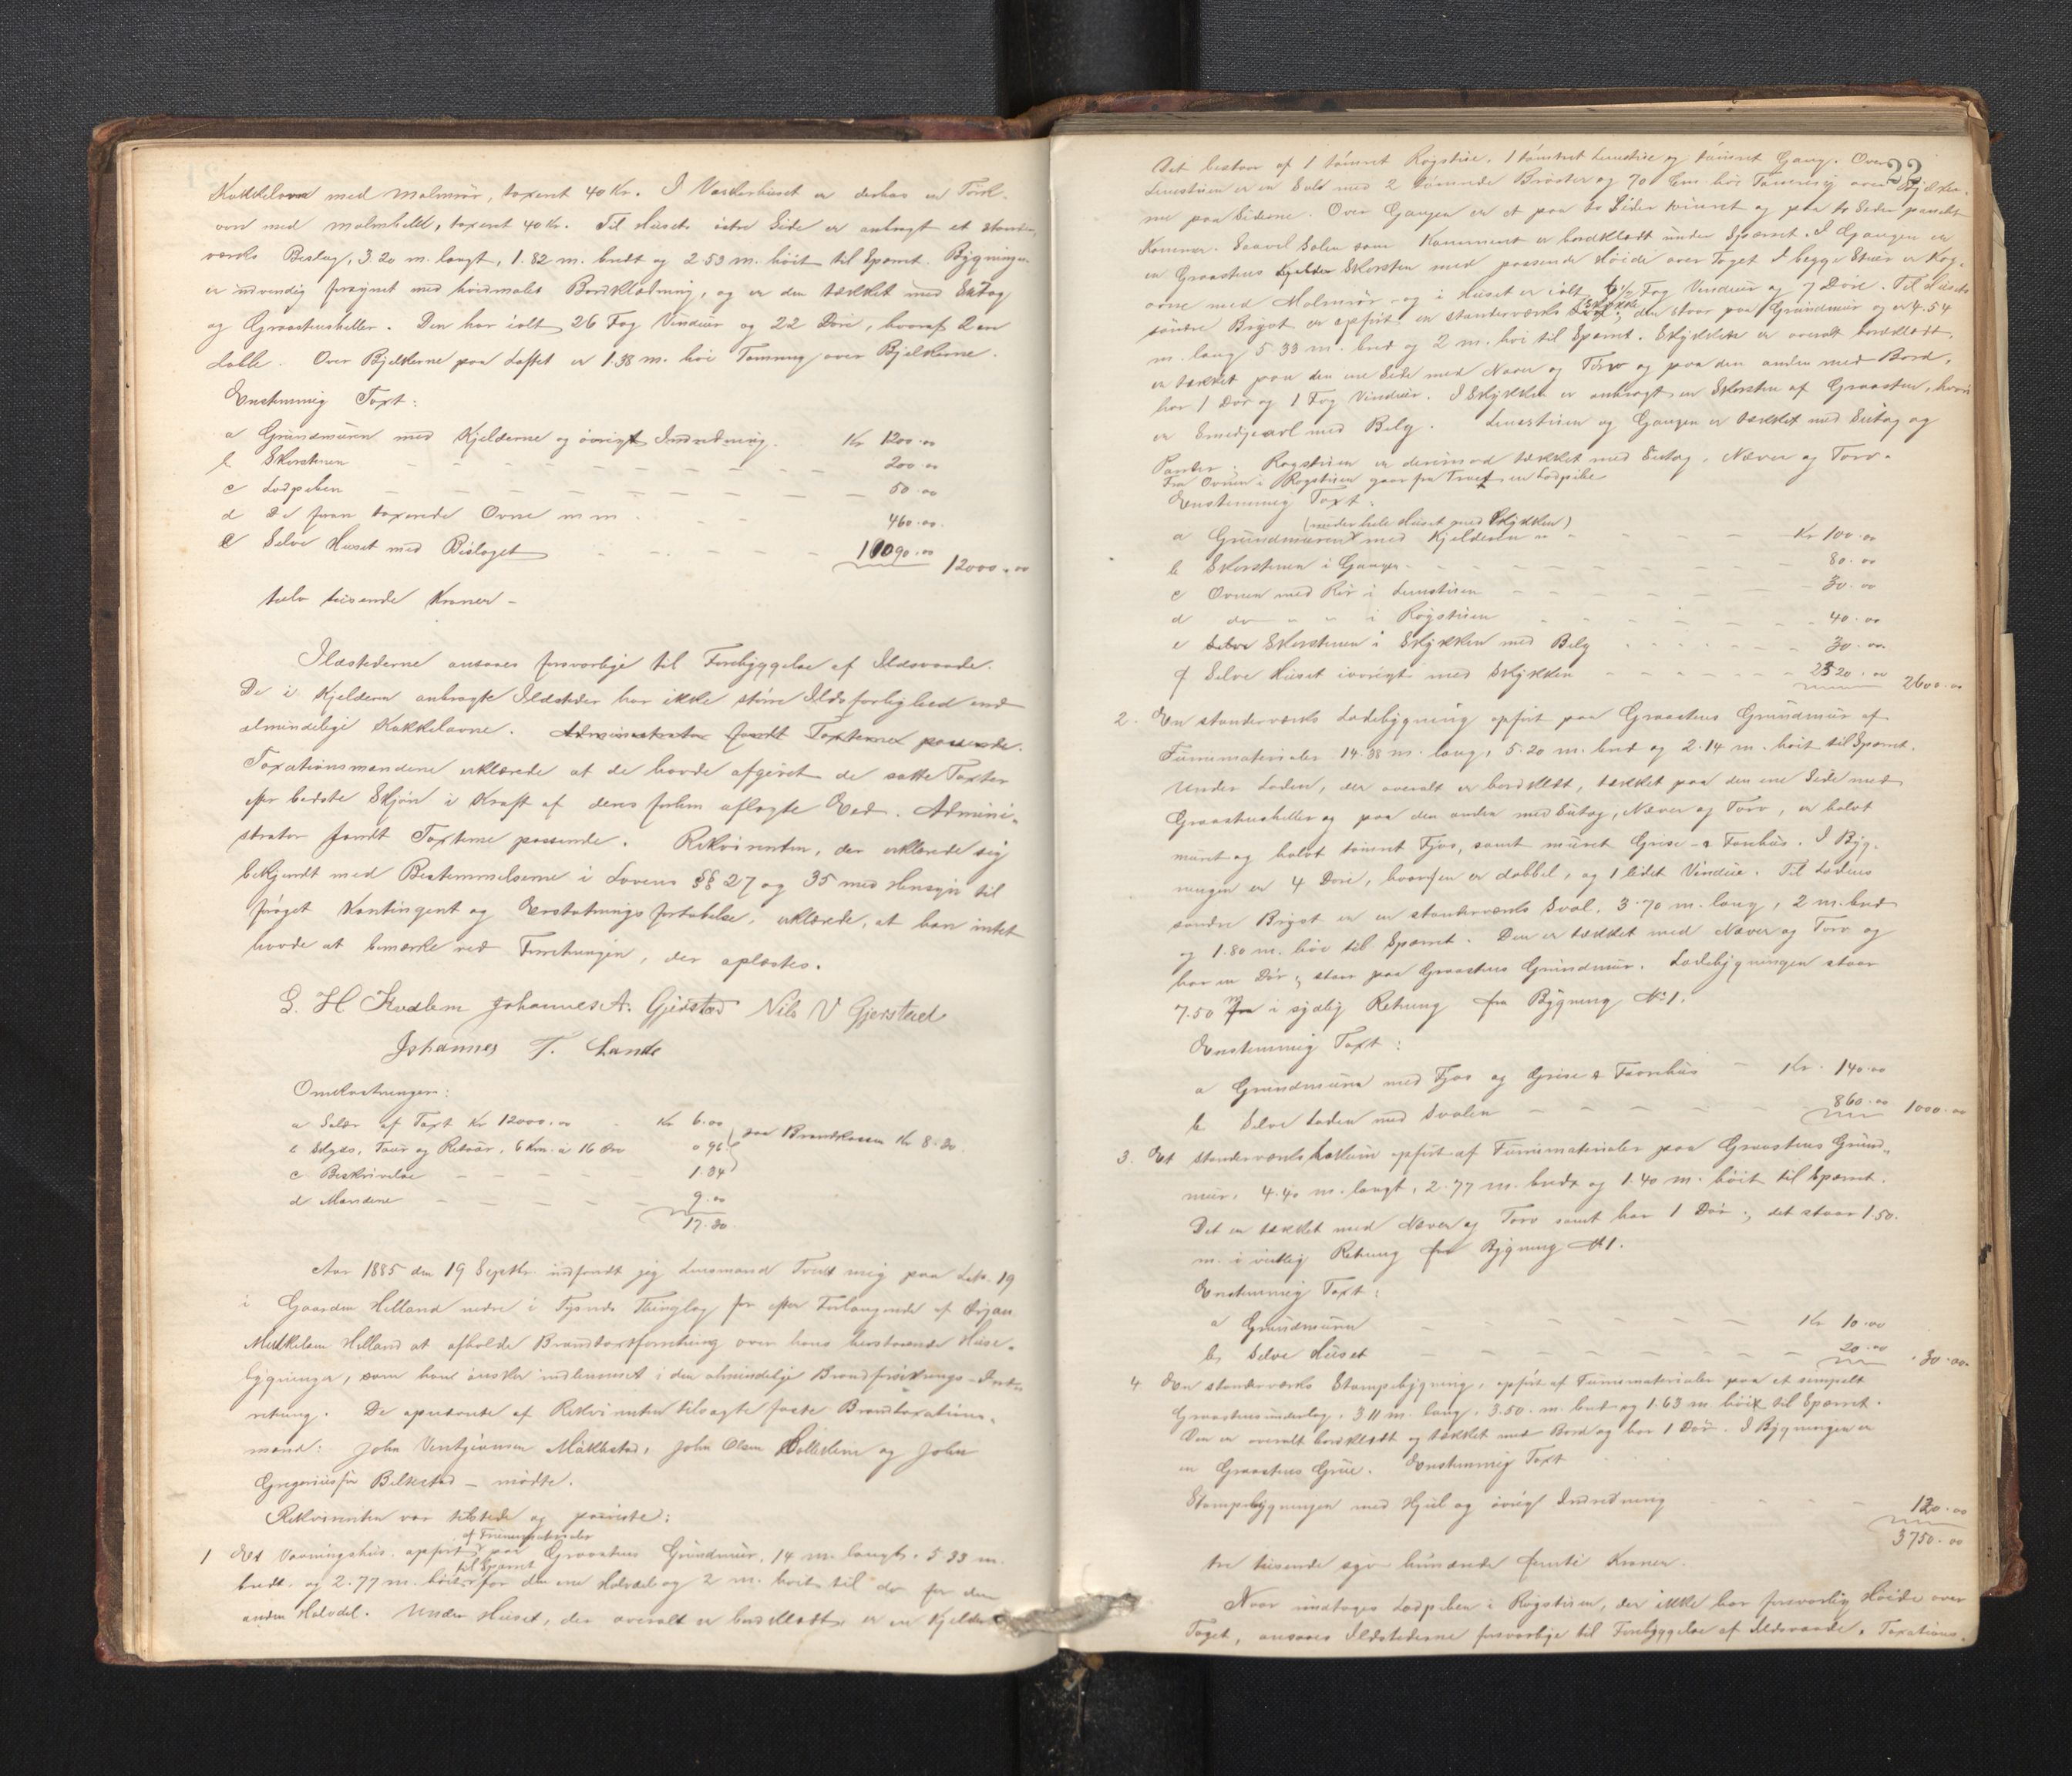 Kakkelovn med malmrør, taxeret 40 Kr. I Vaskerhuset er derhos en Tørk-
ovn med malmhelle, taxeret 40 Kr. Til Husets østre Side er anbragt et stender-
verks Beslag, 3.20 m. langt, 1.82 m. bredt og 2.53 m. høit til Spærret. Bygningen
er indvendig forsynet med hvidmalet Bordklædning, og er den tækket med Sutag
og Graastensheller. Den har ialt 26 Fag Vinduer og 22 Døre, hvoraf 2 ere
dobble. Over Bjelkerne paa Loftet er 1.38 m. høi Tømring over Bjelkerne.
Enstemmig Taxt:
a Grundmuren med Kjelderne og øvrigt Indredning. Kr 1200.00
b Skorstenen 200.00
c Lodpiben 50.00
d De foran taxerede Ovne m m. 460.00
e Selve Huset med Bislaget 10090.00 12000.00
tolv tusende Kroner -
Ildstederne ansaaes forsvarlige til Forebyggelse af Ildsvaade.
De i Kjelderen anbragte Ildsteder har ikke større Ildsfarlighed end
almindelige Kakkelovne. Administrator fandt Taxterne passende.
Taxationsmændene erklærede at de havde afgivet de satte Taxter
efter bedste Skjøn i Kraft af deres forhen aflagte Eed. Admini-
strator fandt Taxterne passende. Rekvirenten, der erklærede sig
bekjendt med Bestemmelserne i Lovens §§ 27 og 35 med Hensyn til
forøget Kontingent og Erstatningsfortabelse, erklærede, at han intet
havde at bemærke ved Forretningen, der oplæstes.
Johannes A. Gjerstad Nils V Gjerstad
Johannes T. Lande
Omkostninger:
a Salær af Taxt Kr 12000.00 Kr 6.00
b Skyds, Tour og Retour, 6 Km. a 16 Øre 0 96 paa Brandkassen Kr 8.30.
c Beskrivelse 1.34
d Mændene 9.00
17.30
Aar 1885 den 19 Septbr. indfandt jeg Lensmand Tvedt mig paa Løb. 19
i Gaarden Helland nedre i Tysnes Thinglag for efter Forlangende af Ørjan
Mikkelsen Helland at afholde Brandtaxtforretning over hans herstaaende Huse-
bygninger, som han ønsker indlemmet i den almindelige Brandforsikrings-Ind-
retning. De opnævnte af Rekvirenten tilsagte faste Brandtaxations-
mænd: John Vernljuvsen John Olsen og John
Gregoriussøn - mødte.
Rekvirenten var tilstede og paaviste:
af Furumaterialer
1 Et Vaaningshus, opført paa Graastens Grundmur, 14 m. langt, 5.33 m.
til Spærret
bredt og 2.77 m. høit for den ene Halvdel og 2 m. høit til do for den
anden Halvdel. Under Huset, der overalt er bordklædt, er en Kjelder
22
Det bestaar af 1 tømret Røgstue, 1 tømret Leunstue og tømret Gang. Over
Leunstuen er en Sal med 2 tømrede Brøster og 70 Cm. høi Tømring over Bjelker-
ne paa Siderne. Over Gangen er et paa to Sider tømret og paa to Sider panelt
Kammer. Saavel Salen som Kammeret er bordklædt under Spærret. I Gangen er
en Graastens Skorsten med passende Høide over Taget. I begge Stuer er Kog-
ovne med Malmrør og i Huset er ialt 6½ Fag Vinduer og 7 Døre. Til Husets
søndre Brøst er opført en stenderværks Skykke; den staar paa Grundmur og er 4.54
m. lang 5.33 m. bred og 2 m. høi til Spærret. Skykken er overalt bordklædt,
er tækket paa den ene Side med Næver og Torv og paa den anden med Bord,
har 1 Dør og 1 Fag Vinduer. I Skykken er anbragt en Skorsten af Graasten, hvori
er Smedjearl med Belg. Leunstuen og Gangen er tækket med Sutag og
Panner. Røgstuen er derimod tækket med Sutag, Næver og Torv.
Fra Ovnen i Røgstuen gaar fra Taget en Lodpibe
Enstemmig Taxt:
(under hele Huset med Skykken)
a Grundmuren med Kjelderen Kr 100.00
b Skorstenen i Gangen 80.00
c Ovnen med Rør i Leunstuen 30.00
d do " " i Røgstuen 40.00
e Skorstenen i Skykken med Belg 30.00
f Selve Huset iøvrigt med Skykken 2320.00 2600.00
2. En stenderværks Ladebygning opført paa Graastens Grundmur af
Furumaterialer 14.38 m. lang, 5.20 m. bred og 2.14 m. høit til Spærret.
Under Laden, der overalt er bordklædt, tækket paa den ene Side med
Graastensheller og paa den anden med Sutag, Næver og Torv, er halvt
muret og halvt tømret Fjøs, samt muret Grise- & Faarehus. I Byg-
ningen er 4 Døre, hvoraf en er dobbel, og 1 lidet Vindue. Til Ladens
søndre Brøst er en stenderværks Sval, 3.70 m. lang, 2 m. bred
og 1.80 m. høi til Spærret. Den er tækket med Næver og Torv og
har en Dør; staar paa Graastens Grundmur. Ladebygningen staar
7.50 m i sydlig Retning fra Bygning No 1.
Enstemmig Taxt:
a Grundmuren med Fjøs og Grise & Faarehus Kr. 140.00
b Selve Laden med Svalen 860.00 1000.00
3. Et stenderværks opført af Furumaterialer paa Graastens Grund-
mur, 4.40 m. langt, 2.77 m. bredt og 1.40 m. høit til Spærret.
Det er tækket med Næver og Torv samt har 1 Dør; det staar 1.50.
m. i vestlig Retning fra Bygning No 1.
Enstemmig Taxt:
a Grundmuren Kr 10.00
b Selve Huset 20.00 30.00
4 En stenderværks Stampebygning, opført af Furumaterialer paa et simpelt
Graastensunderlag, 3.11 m. lang, 3.50. m. bred og 1.63 m høit til Spærret.
Den er overalt bordklædt og tækket med Bord og har 1 Dør. I Bygningen er
en Graastens Grue. Enstemmig Taxt
Stampebygningen med Hjul og øvrigt Indredning 120.00
3750.00
tre tusende syv hundrede femti Kroner.
Naar undtages Lodpiben i Røgstuen, der ikke har forsvarlig Høide over
Taget, ansaaes Ildstederne forsvarlige til Forebyggelse af Ildsvaade. Taxations-